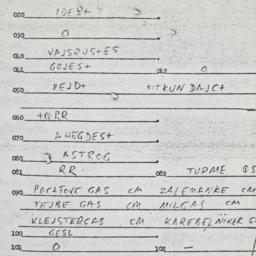 020 IDEST
030 O
VAJSRUS+ES
040 GOJEST
041 042 O
050 PEJD+ NITKUN DAJC+
060 +QRR
070 AHEGDES+
080 ASTROG
081 RR. 082 TURME
090 POCATOVE GAS CM ZALEMANKE CM
TEJBE GAS CM MILGAS CM
KLEJSTERGAS CM KAREBELNIKER
100 GESL
101 O 102 -